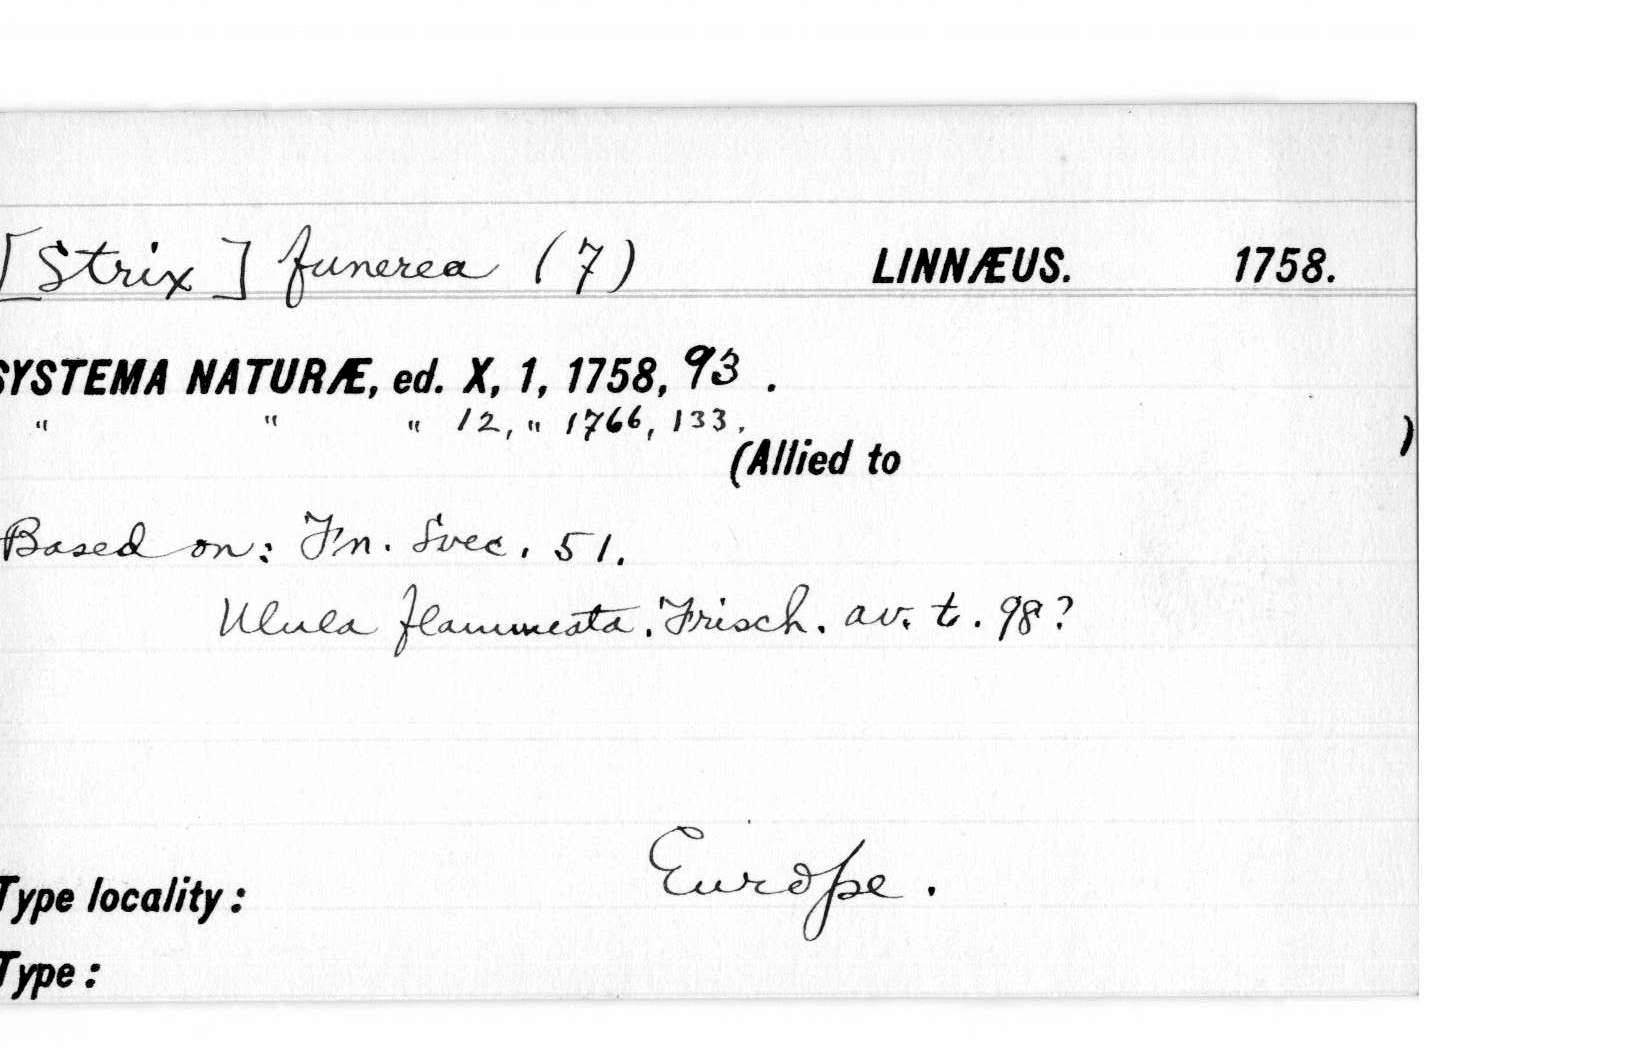 [Strix] funerea (7) LINNÆUS. 1758.
SYSTEMA NATURÆ, ed. X, 1, 1758, 93.
" " " 12, " 1766, 133.
(Allied to )
Based on: Fn. Svec. 51.
Ulula flammeata. Frisch. av. t. 98?
Type locality: Europe.
Type: